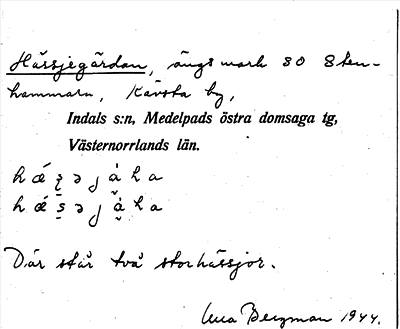 Hässjegårdan, ängsmark SO Sten-
hammarn, Kävsta by,
Indals s:n, Medelpads östra domsaga tg,
Västernorrlands län.
Där står två storhässjor.
Bergman 1944.